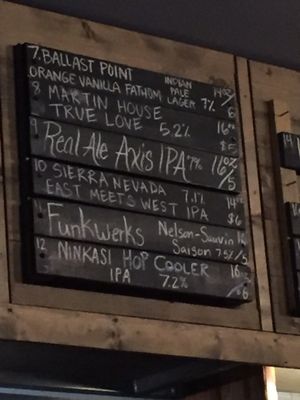 7. BALLAST POINT
ORANGE VANILLA FATHOM INDIAN PALE LAGER 7% 14oz/6
8 MARTIN HOUSE
TRUE LOVE 5.2% 16oz
$5
9 Real Ale Axis IPA 7% 16oz/5
10 SIERRA NEVADA 7.1% 14oz
EAST MEETS WEST IPA $6
11 Funkwerks Nelson-Sauvin
Saison 7.5% /5
12 NINKASI HOP COOLER 16oz
IPA 7.2% /6
14